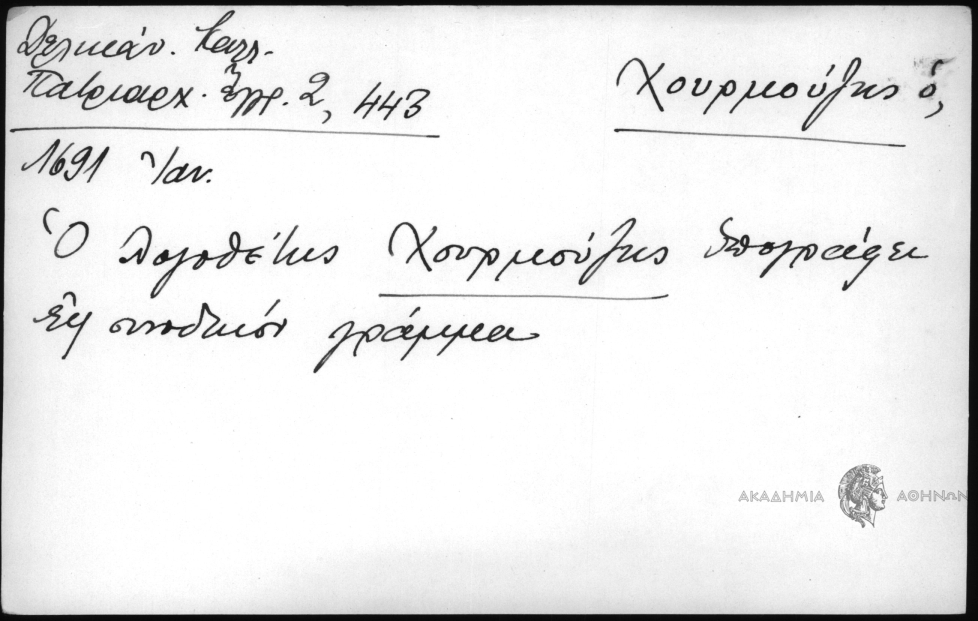 Δελικάν. Καλλ.
Πατριαρχ. Ἔγγρ. 2, 443
Χουρμούζης ὁ,
1691 Ἰαν.
Ὁ λογοθέτης Χουρμούζης ὑπογράφει
εἰς συνοδικόν γράμμα
ΑΚΑΔΗΜΙΑ ΑΘΗΝΩΝ